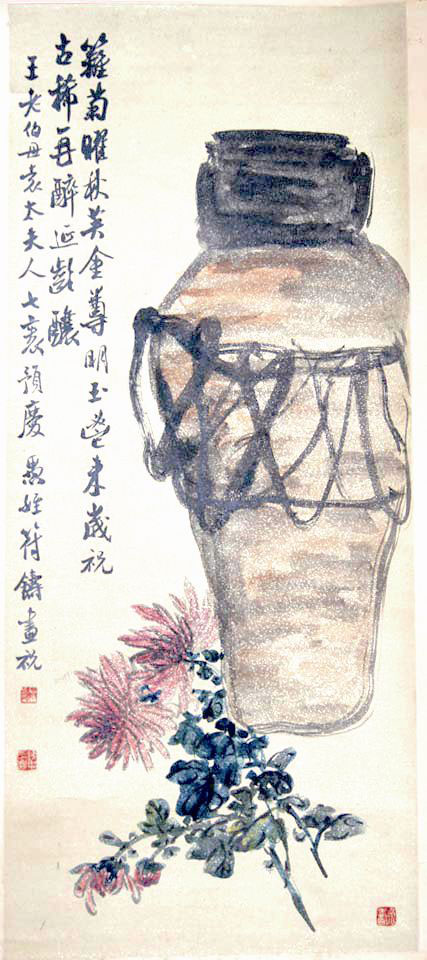 籬菊曜秋英金尊明玉斝來歲祝
古稀再醉延齡釀
王老伯母袁太夫人七褱預慶 愚姪符鑄畫祝